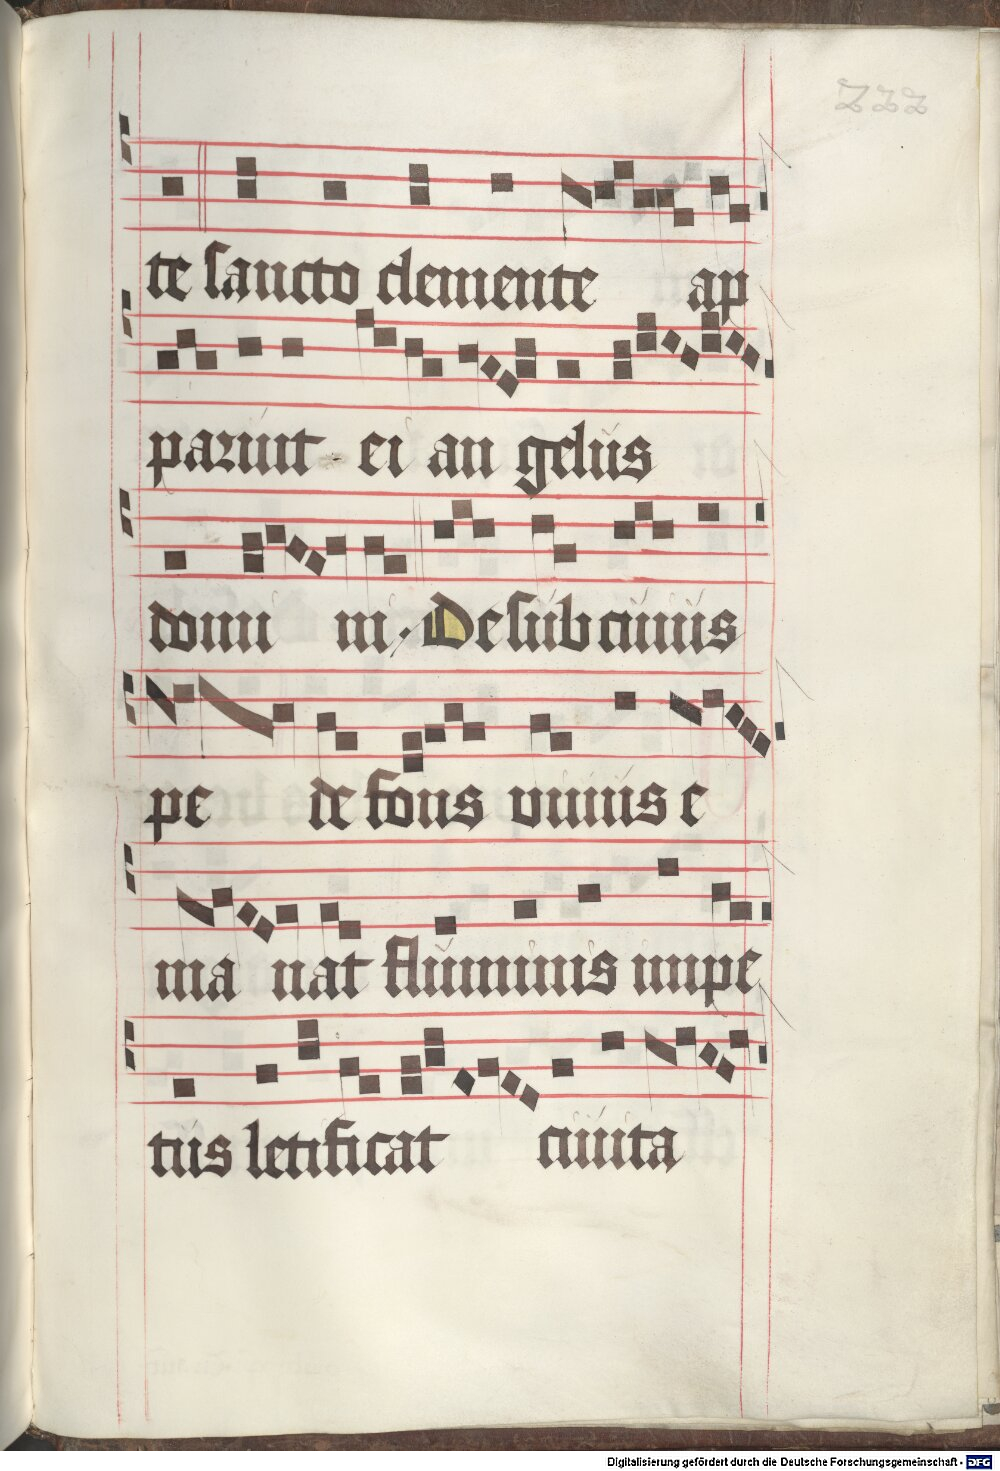 222
te sancto clemente ap
paruit ei an gelus
domi ni. De sub cuius
pe de fons viuus e
ma nat fluminis impe
tus letificat ciuita
Digitalisierung gefördert durch die Deutsche Forschungsgemeinschaft - DFG